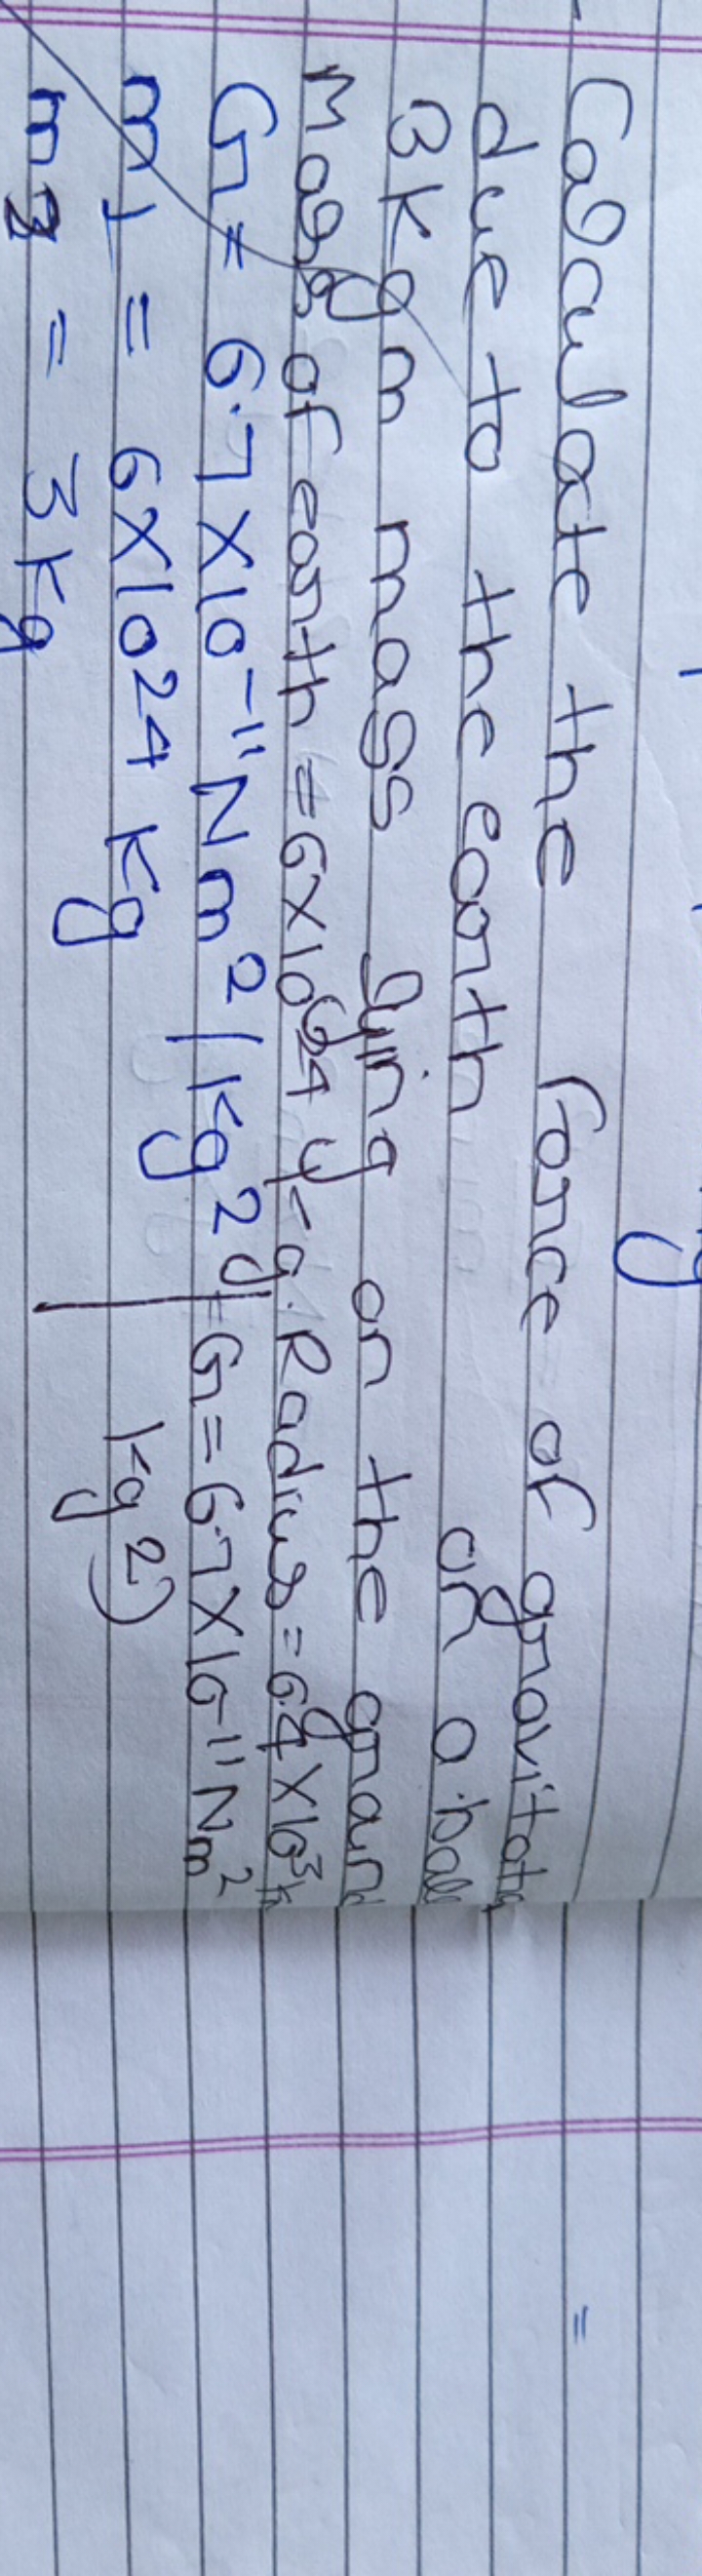 Calculate the force of gravitation
due to the earth on a ball
3kg m mass lying on the ground
Mass of earth = 6×10²⁴ kg. Radius = 6.4×10³
G = 6.7×10⁻¹¹ Nm²/kg² G = 6.7×10⁻¹¹ Nm²
m1 = 6×10²⁴ kg kg²)
m2 = 3kg